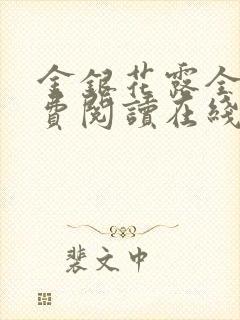 金銀花露全
費閱讀在綫
裴文中